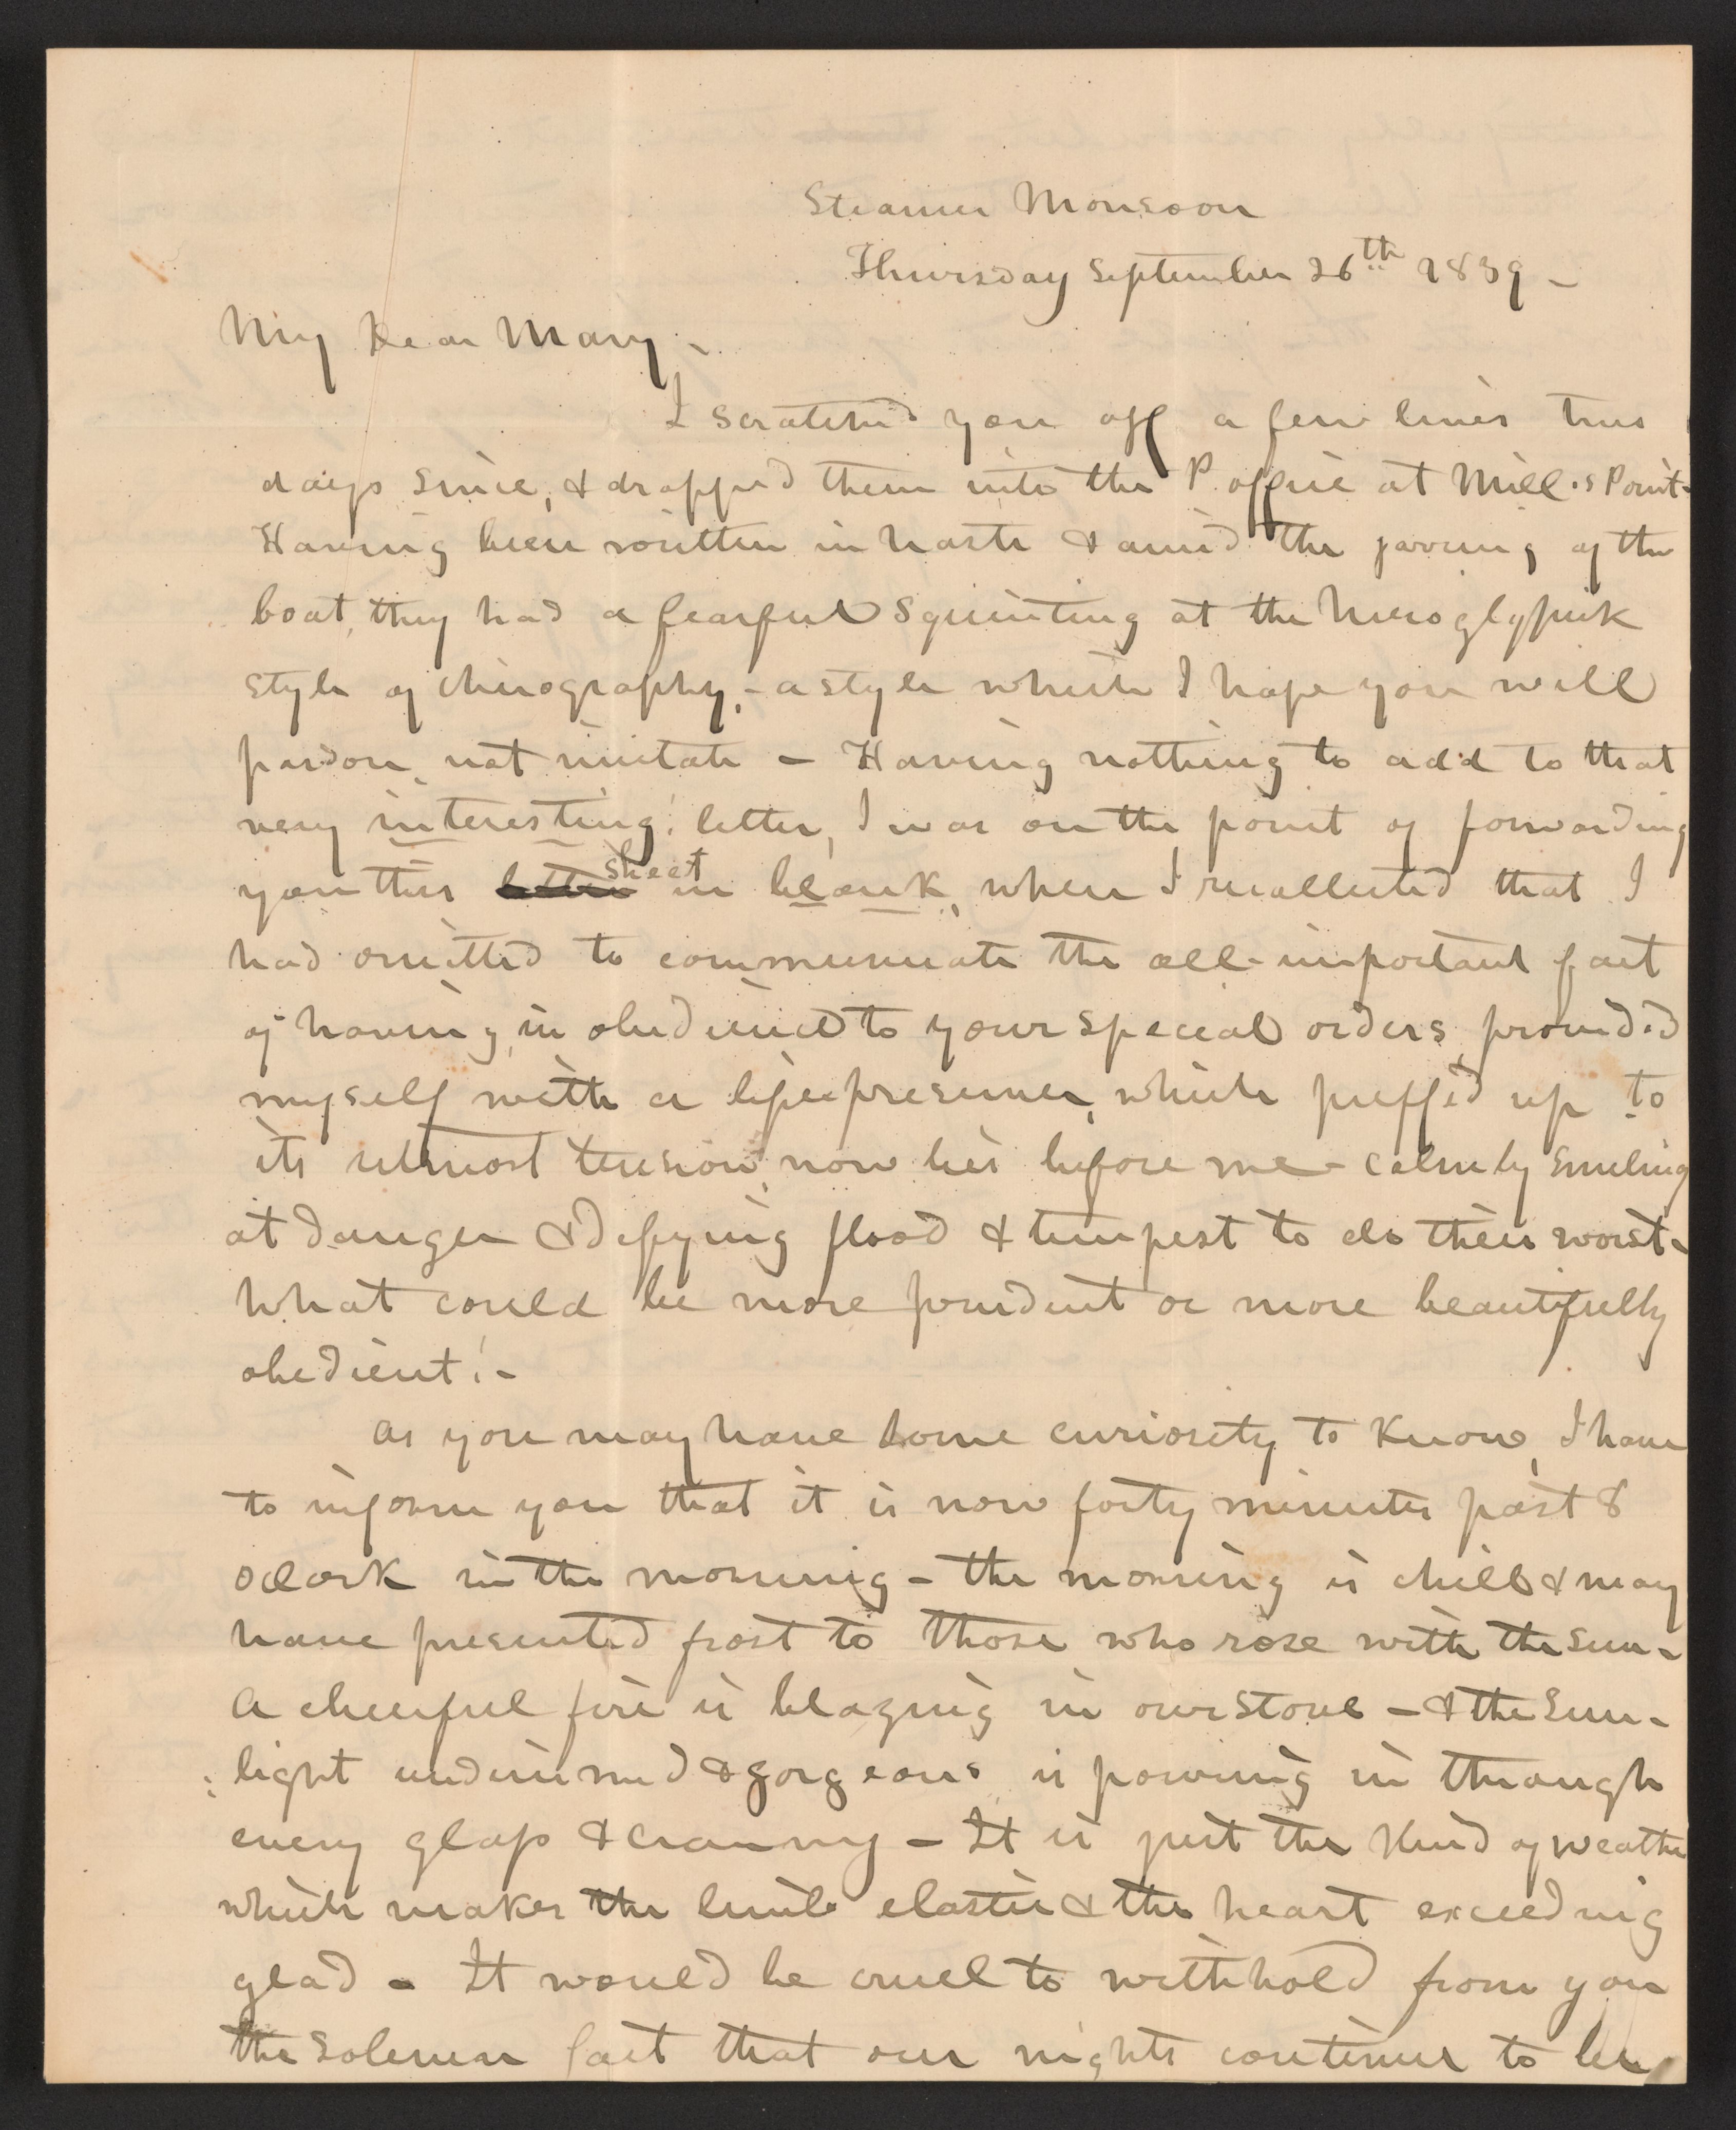 Steamer Monsoon
Thursday September 26th 1839 -
My Dear Mary -
I scratched you off a few lines two
days since, & dropped them into the P. office at Mill's Point -
Having been written in haste & amid the jarring of the
boat, they had a fearful squinting at the hieroglyphik
style of chirography, - a style which I hope you will
pardon, not imitate - Having nothing to add to that
very interesting! letter, I was on the point of forwarding
you this letter sheet in blank, when I recollected that I
had omitted to communicate the all-important fact
of having, in obedience to your special orders, provided
myself with a life-preserver, which puffed up to
its utmost tension, now lies before me - calmly smiling
at danger & defying flood & tempest to do their worst -
What could be more prudent or more beautifully
obedient! -
As you may have some curiosity to know, I have
to inform you that it is now forty minutes past 8
oclock in the morning - the morning is chill & may
have presented frost to those who rose with the sun -
A cheerful fire is blazing in our stove - & the sun-
light undimmed & gorgeous is pouring in through
every glass & cranny - It is just the kind of weather
which makes the limb elastic & the heart exceeding
glad - It would be cruel to withhold from you
the solemn fact that our nights continue to be